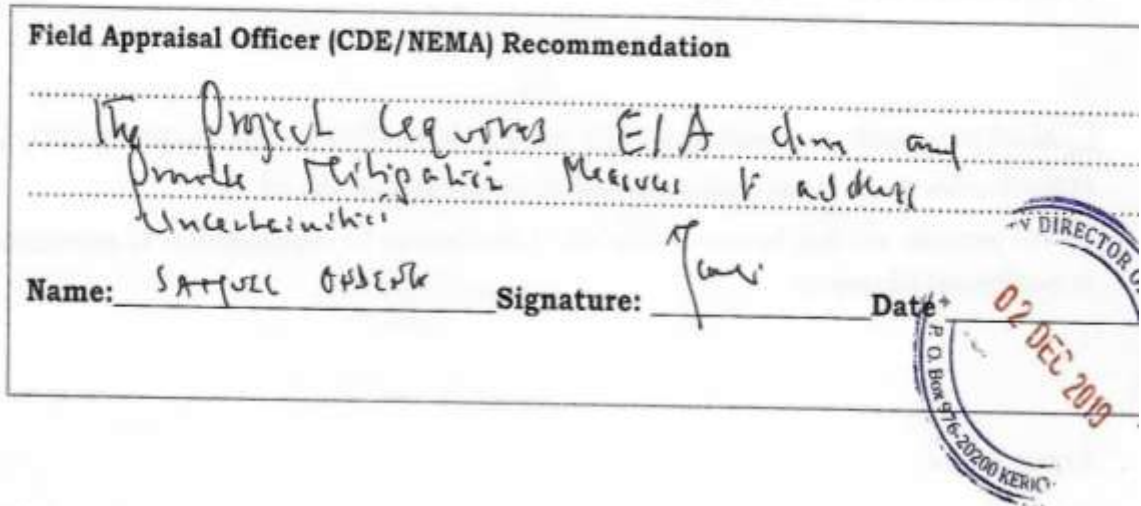 Field Appraisal Officer (CDE/NEMA) Recommendation
The Project requires EIA done and
Provide Mitigation Measures to address
Uncertainities
Name: SAMUEL Signature: Date
DIRECTOR O
02 DEC 2019
P. O. Box 976-20200 KERIC